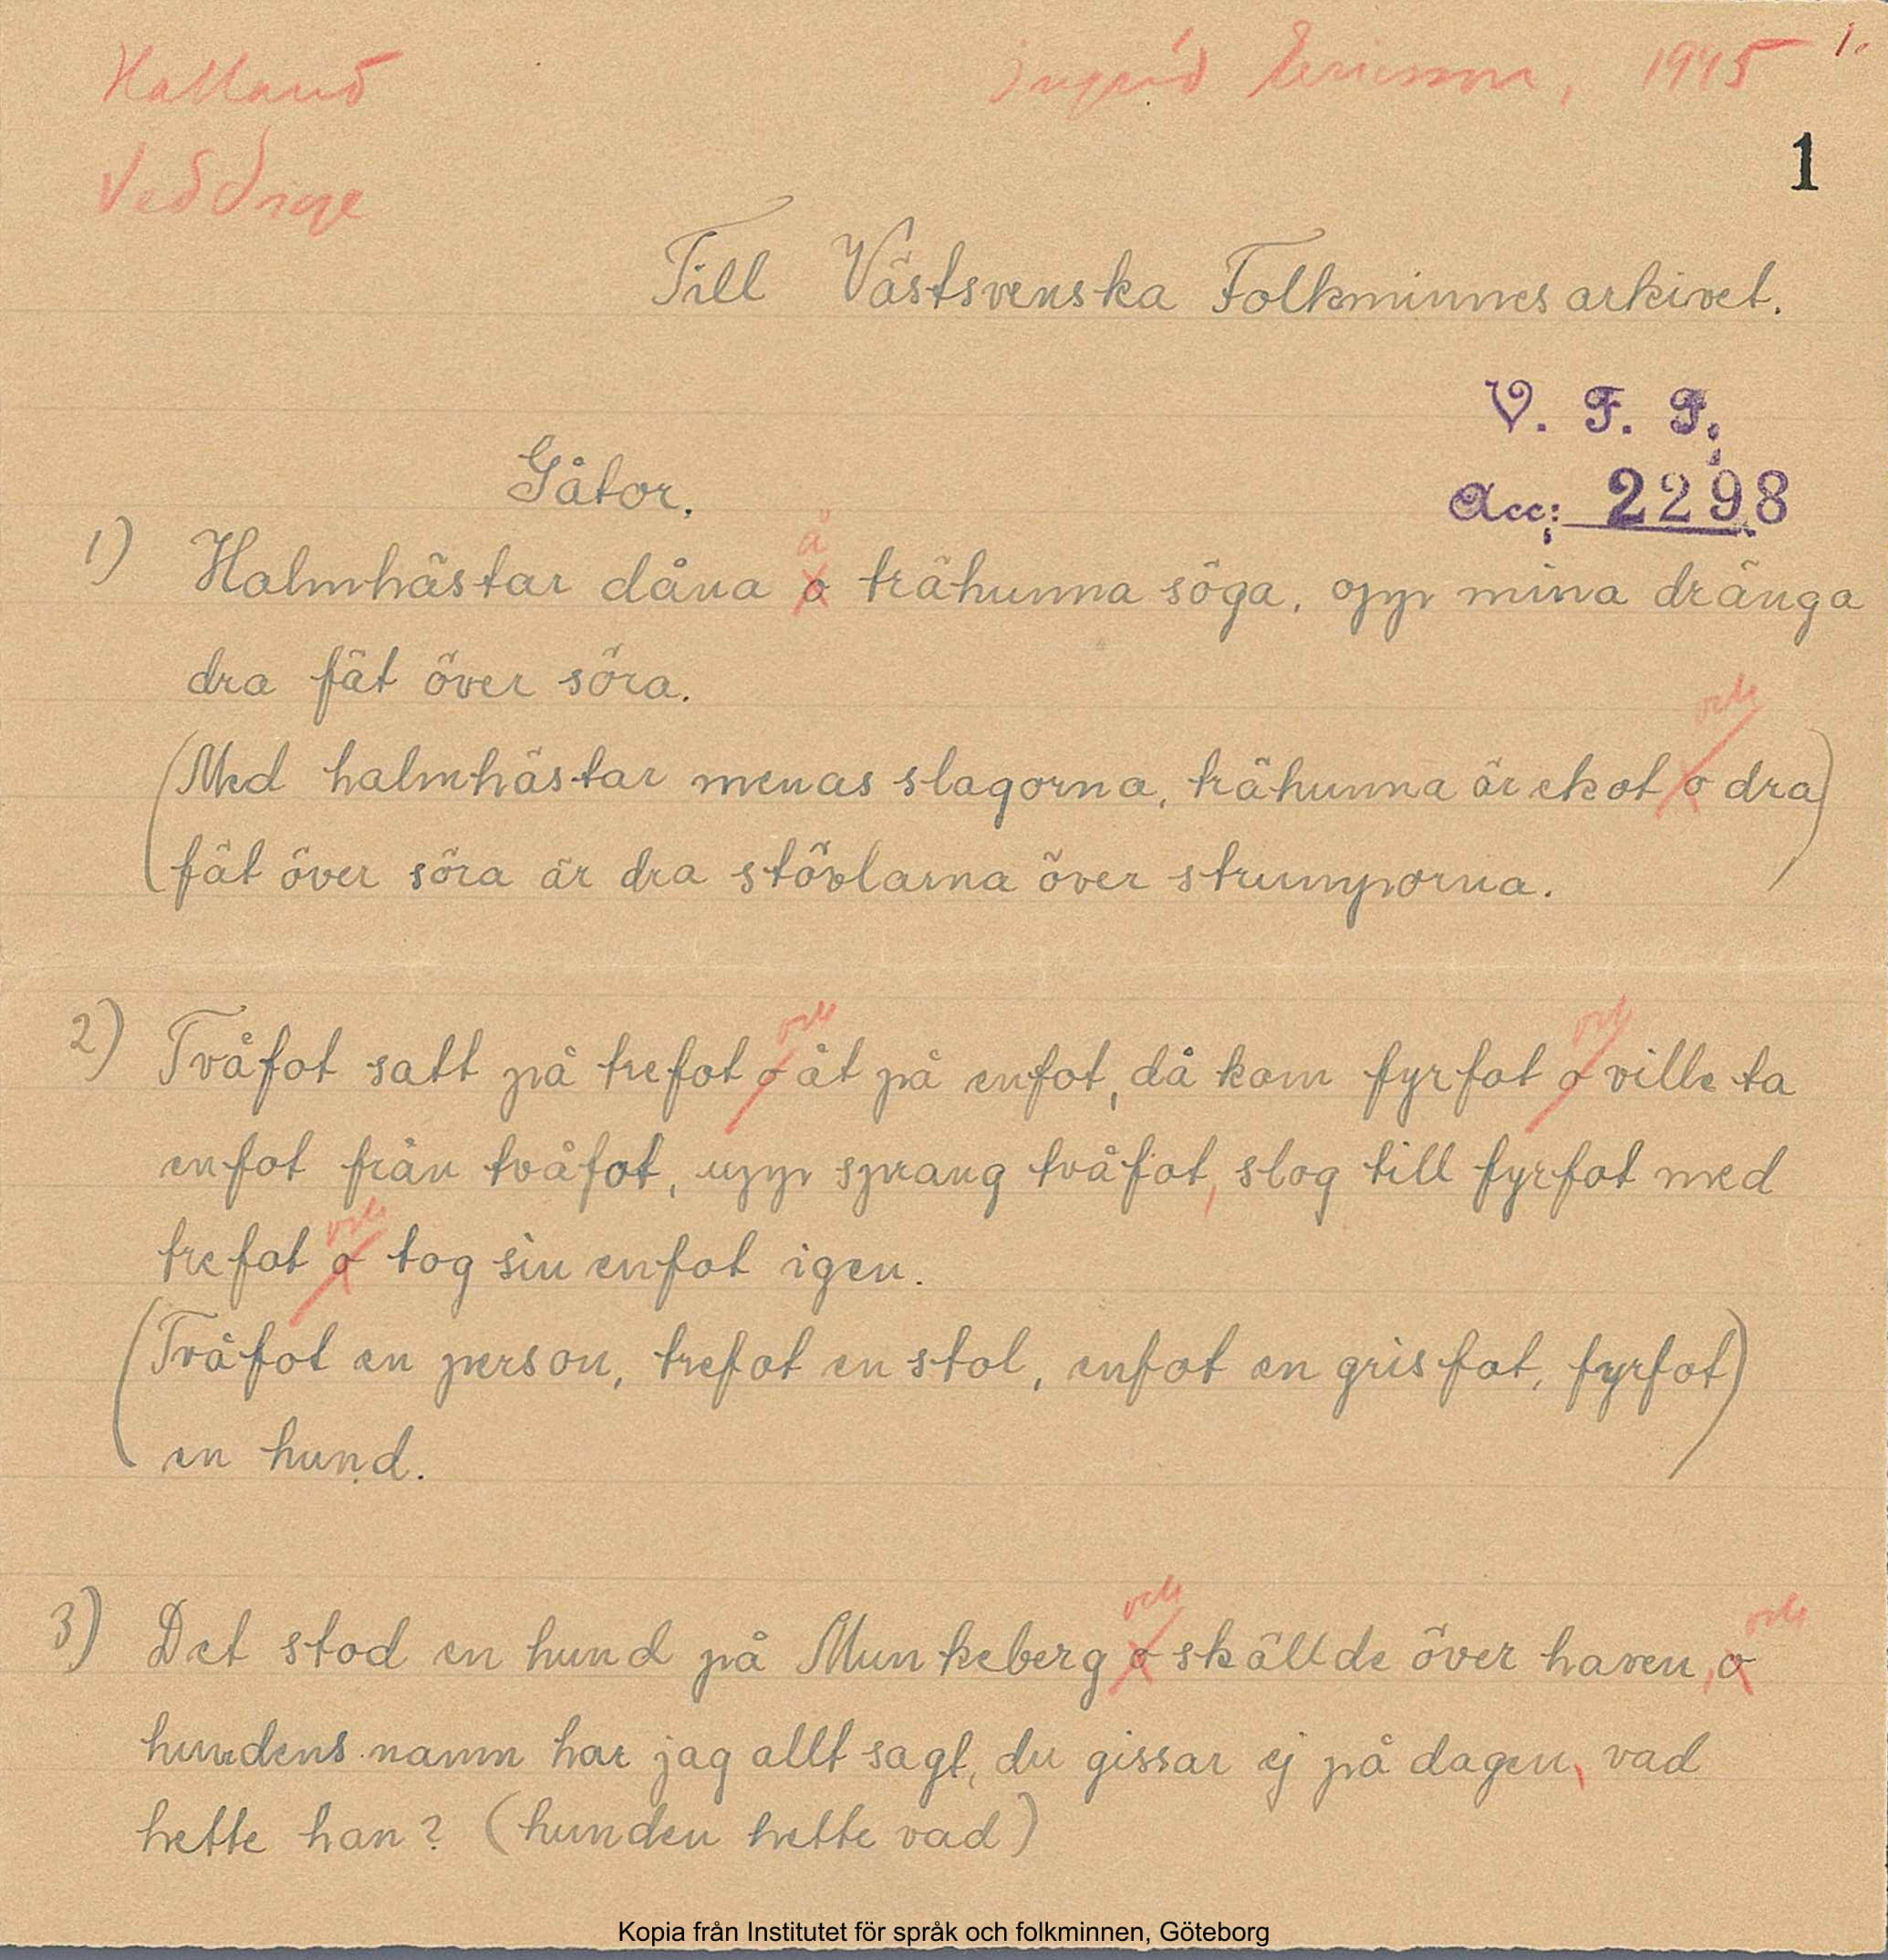 Halland
Ingrid Ericsson, 1945
1.
Veddinge
1
Till Västsvenska Folkminnesarkivet.
V. F. F.
Acc: 2298
Gåtor.
å
1) Halmhästar dåna o trähunna söga, opp mina dränga
dra fät över söra.
och
(Med halmhästar menas slagorna, trähunna är ekot o dra
fät över söra är dra stövlarna över strumporna.)
och och
2) Tvåfot satt på trefot o åt på enfot, då kom fyrfot o ville ta
enfot från tvåfot, upp sprang tvåfot, slog till fyrfot med
och
trefot o tog sin enfot igen.
(Tvåfot en person, trefot en stol, enfot en grisfot, fyrfot
en hund.)
och och
3) Det stod en hund på Munkeberg o skällde över haven, o
hundens namn har jag allt sagt, du gissar ej på dagen, vad
hette han? (hunden hette vad)
Kopia från Institutet för språk och folkminnen, Göteborg